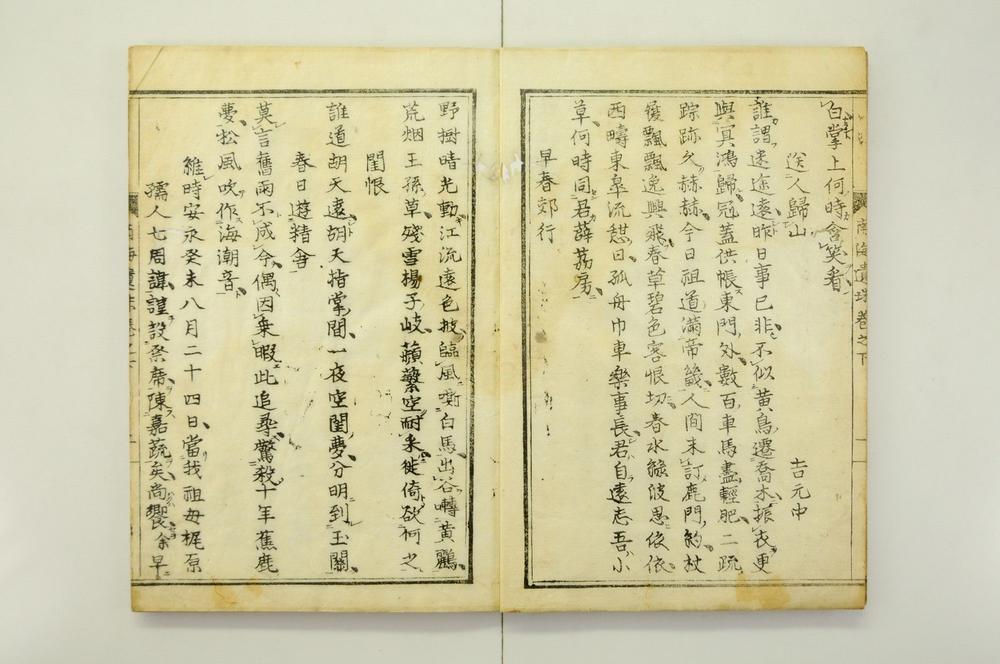 白掌上何時含笑看
送人歸山
吉元中
誰謂迷途遠昨日事已非不似黃鳥遷喬木振衣更
與冥鴻歸冠蓋供帳東門外數百車馬盡輕肥二疏
踪跡久赫赫今日祖道滿帝畿人間未訂鹿門約杖
飄飄逸興飛春草碧色客恨切春水綠波思依依
西疇東皋流憩日孤舟巾車樂事長君自遠志吾小
草何時同君薜荔房
早春郊行
野樹晴光動江流遠色披臨風嘶白馬出谷囀黃鸝
荒烟王孫草殘雪楊子岐蘋蘩空耐采徙倚欲何之
閨恨
誰道胡天遠胡天指掌間一夜空閨夢分明到玉關
春日遊精舍
莫言舊雨不成今偶因乗暇此追尋驚殺十年蕉鹿
夢松風吹作海潮音
維時安永癸未八月二十四日當我祖母梶原
孺人七周諱謹設祭席陳嘉蔬矣尚饗余早
南海遺珠卷之下